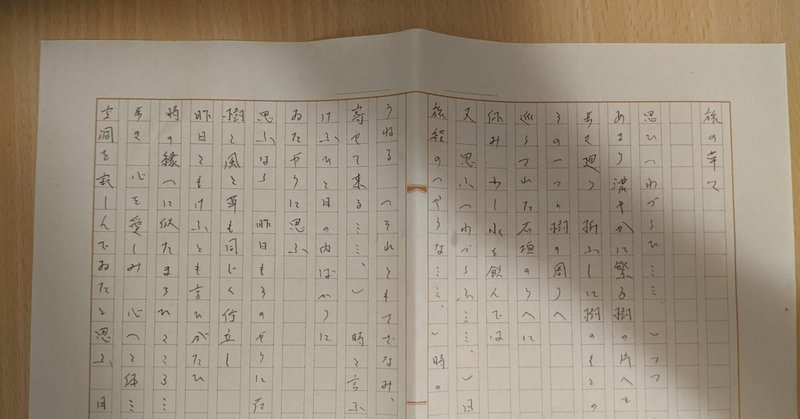 旅の果て
思ひ(わづらひ……、)つつ
あまり濃やかに繁る樹の片へを
歩き廻り 折ふしに樹のもとの
その一つの樹の周りへ
石垣のうへに
休み 少し水を飲んでは
又 思ふ(わづらふ……、)日
旅程の(やうな……、)時の
うねる (それとも
寄せて来る……、) 時と言ふ
けふひと日の内ばかりに
ゐたやうに思ふ、
思ふなら 昨日もそのやうに在
樹と風と草も同じく佇立し
昨日ともけふとも言ひがたひ
時の縁へに似た
歩き 心を愛しみ 心へと
空洞を んでゐたと思ふ、 日